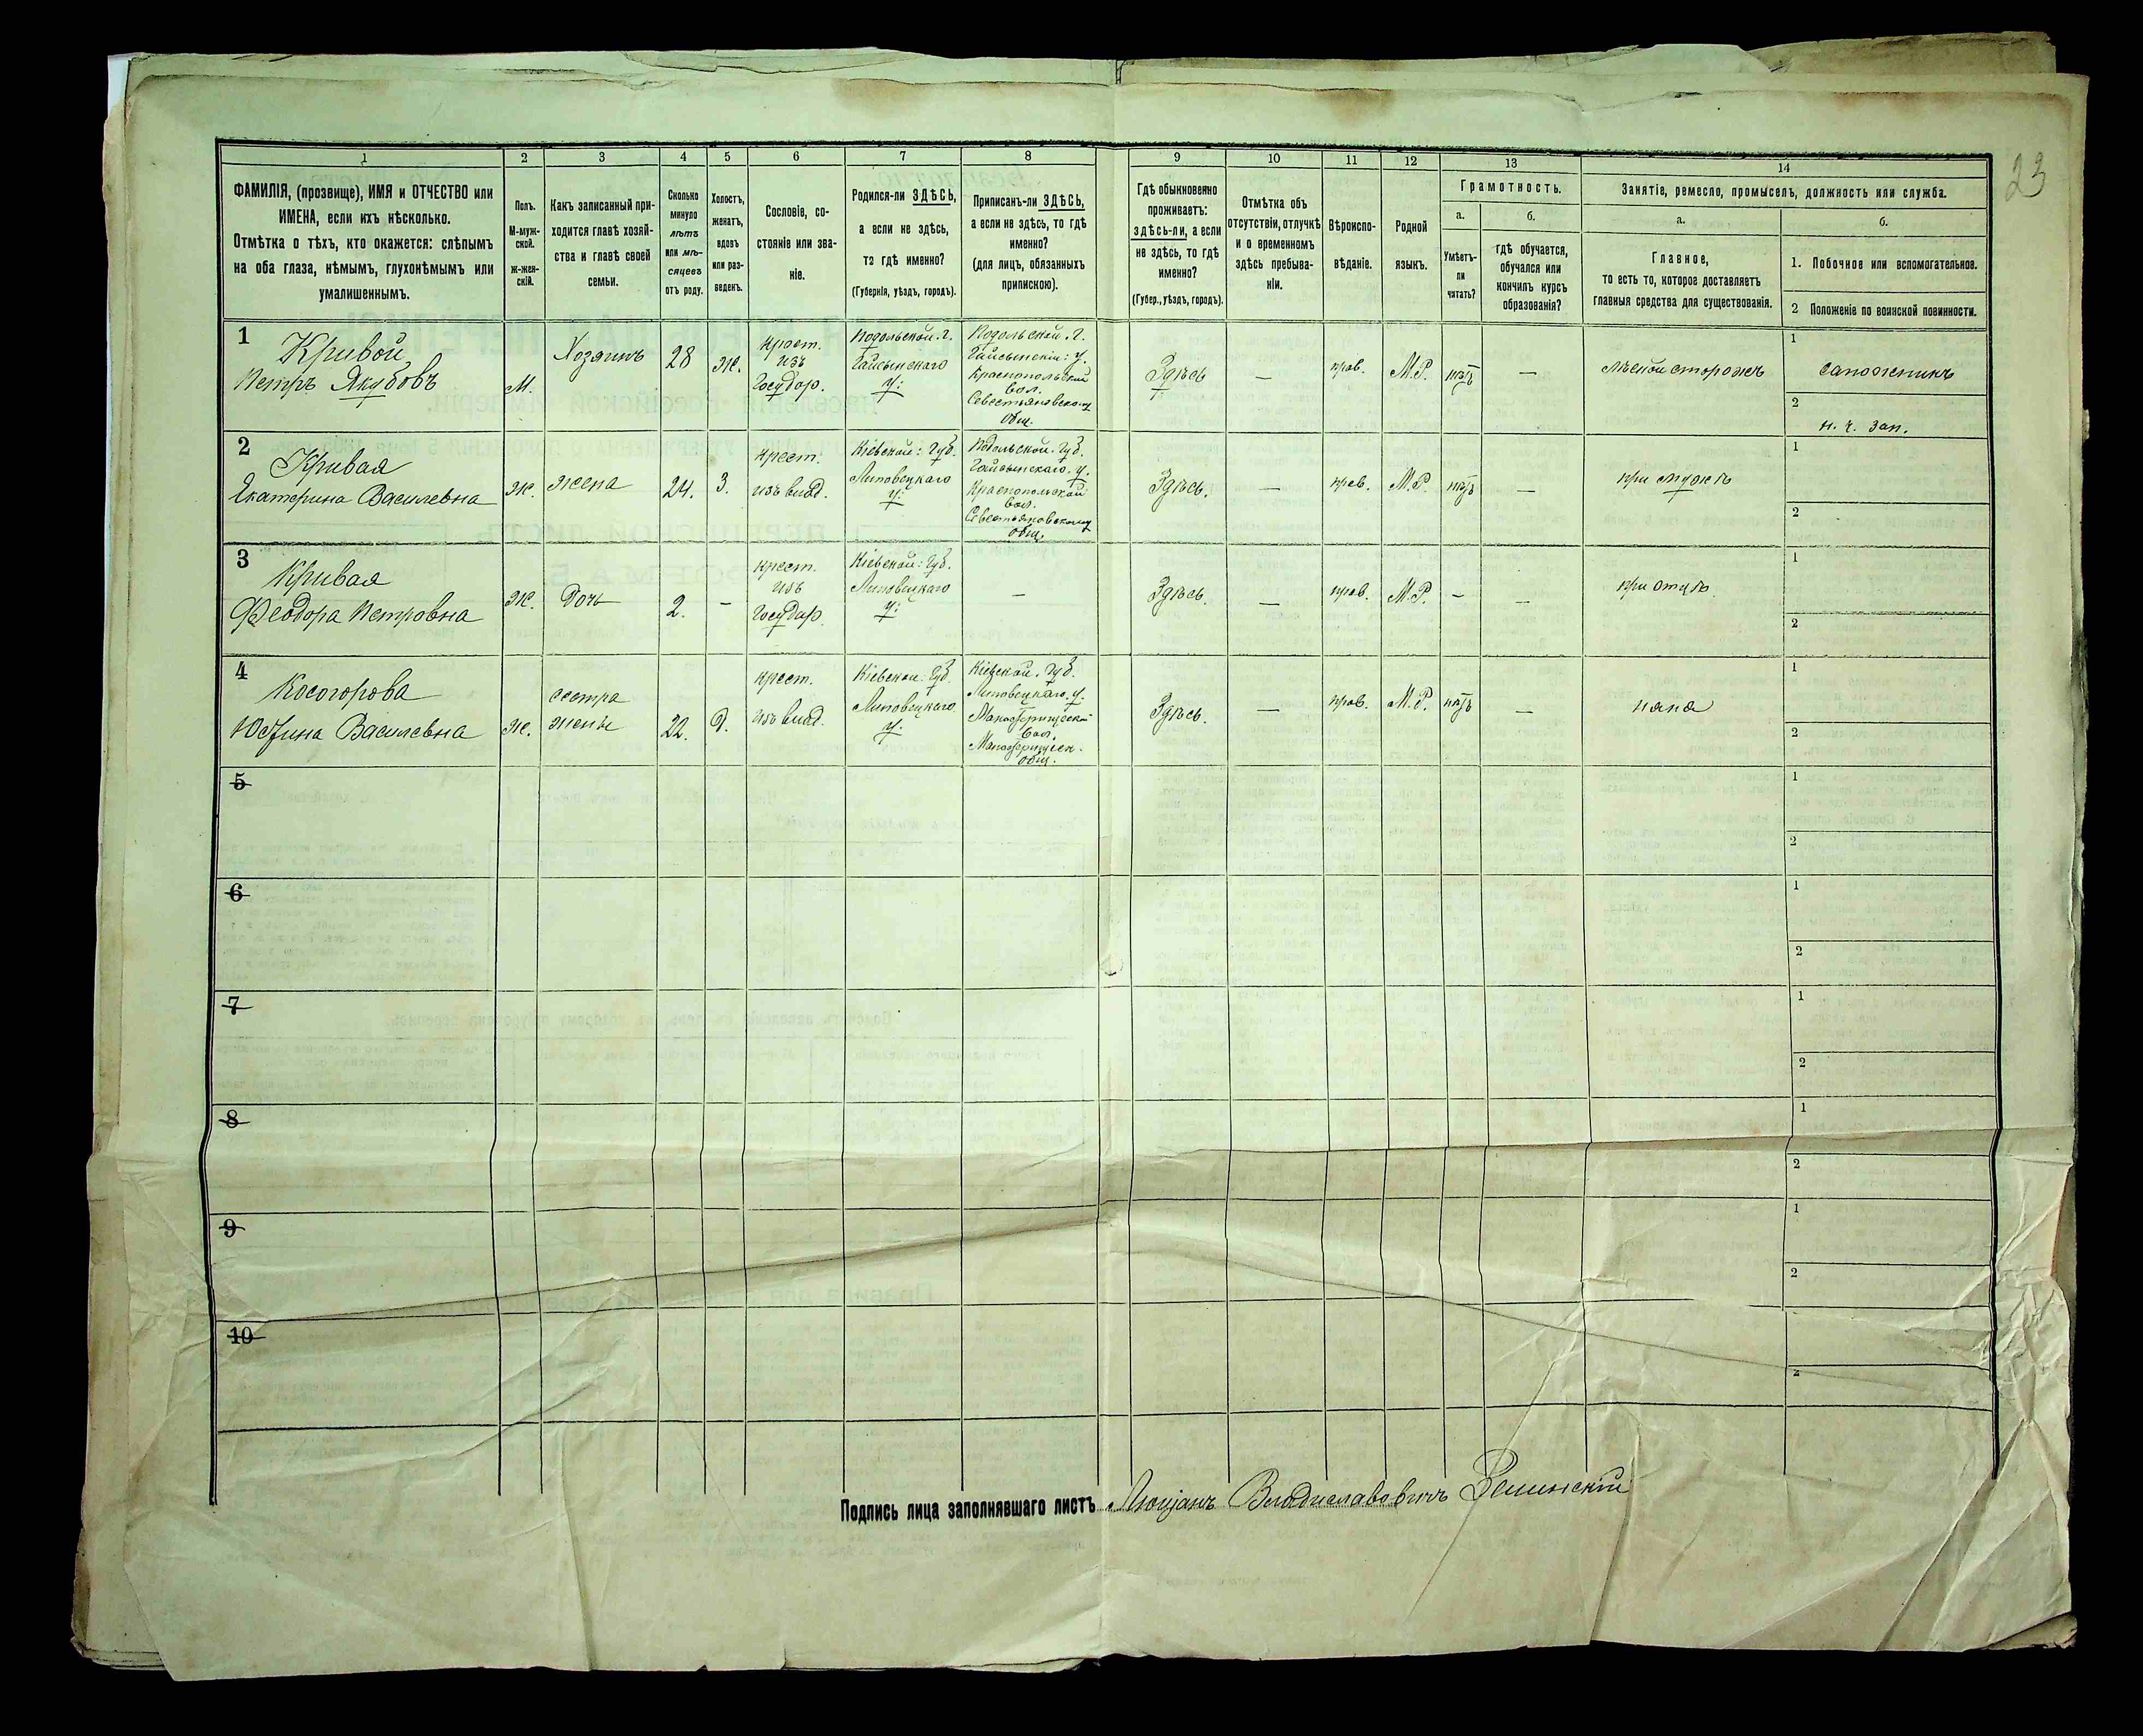 23
1
2
3
4
5
6
7
8
9
10
11
12
13
14
ФАМИЛІЯ, (прозвище), ИМЯ и ОТЧЕСТВО или
ИМЕНА, если ихъ нѣсколько.
Отмѣтка о тѣхъ, кто окажется: слѣпымъ
на оба глаза, нѣмымъ, глухонѣмымъ или
умалишеннымъ.
Полъ.
М-муж-
ской.
ж-жен-
скій.
Какъ записанный при-
ходится главѣ хозяй-
ства и главѣ своей
семьи.
Сколько
минуло
лѣтъ
или мѣ-
сяцевъ
отъ роду.
Холостъ,
женатъ,
вдовъ
или раз-
веденъ.
Сословіе, со-
стояніе или зва-
ніе.
Родился-ли ЗДѢСЬ,
а если не здѣсь,
то гдѣ именно?
(Губернія, уѣздъ, городъ).
Приписанъ-ли ЗДѢСЬ,
а если не здѣсь, то гдѣ
именно?
(для лицъ, обязанныхъ
припискою).
Гдѣ обыкновенно
проживаетъ:
здѣсь-ли, а если
не здѣсь, то гдѣ
именно?
(Губер., уѣздъ, городъ).
Отмѣтка объ
отсутствіи, отлучкѣ
и о временномъ
здѣсь пребыва-
ніи.
Вѣроиспо-
вѣданіе.
Родной
языкъ.
Грамотность.
а.
б.
Умѣетъ-
ли
читать?
гдѣ обучается,
обучался или
кончилъ курсъ
образованія?
Занятіе, ремесло, промыселъ, должность или служба.
а.
б.
Главное,
то есть то, которое доставляетъ
главныя средства для существованія.
1. Побочное или вспомогательное.
2 Положеніе по воинской повинности.
1
Кривой
Петръ Якубовъ
М.
Хозяинъ
28
Ж.
крест.
изъ
Государ.
Подольской. г.
Гайсынскаго
у:
Подольской. г.
Гайсынскій: у.
Краснопольской
вол.
Севестьяновскому
общ.
Здѣсь
—
прав.
М.Р.
нѣтъ
—
лѣсной сторожъ
1
сапожникъ
2
н. ч. зап.
2
Кривая
Екатерина Василевна
Ж.
жена
24.
З.
крест.
изъ влад.
Кіевской: губ.
Липовецкаго
у:
Подольской. губ.
Гайсынскаго. у.
Краснопольской
вол.
Севестьяновскому
общ.
Здѣсь.
—
прав.
М.Р.
нѣтъ
—
при мужѣ
1
2
3
Кривая
Феодора Петровна
Ж.
дочь
2.
-
крест.
изъ
Государ.
Кіевской: губ.
Липовецкаго
у:
—
Здѣсь.
—
прав.
М.Р.
-
—
при отцѣ.
1
2
4
Косогорова
Юстина Василевна
Ж.
сестра
жены
22.
Д.
крест.
изъ влад.
Кіевской. Губ.
Липовецкаго
у:
Кіевской. губ.
Липовецкаго. у.
вол.
общ.
Здѣсь.
—
прав.
М.Р.
нѣтъ
—
няня
1
2
5
1
2
6
1
2
7
1
2
8
1
2
9
1
2
10
2
Подпись лица заполнявшаго листъ Люціанъ Владиславовичъ